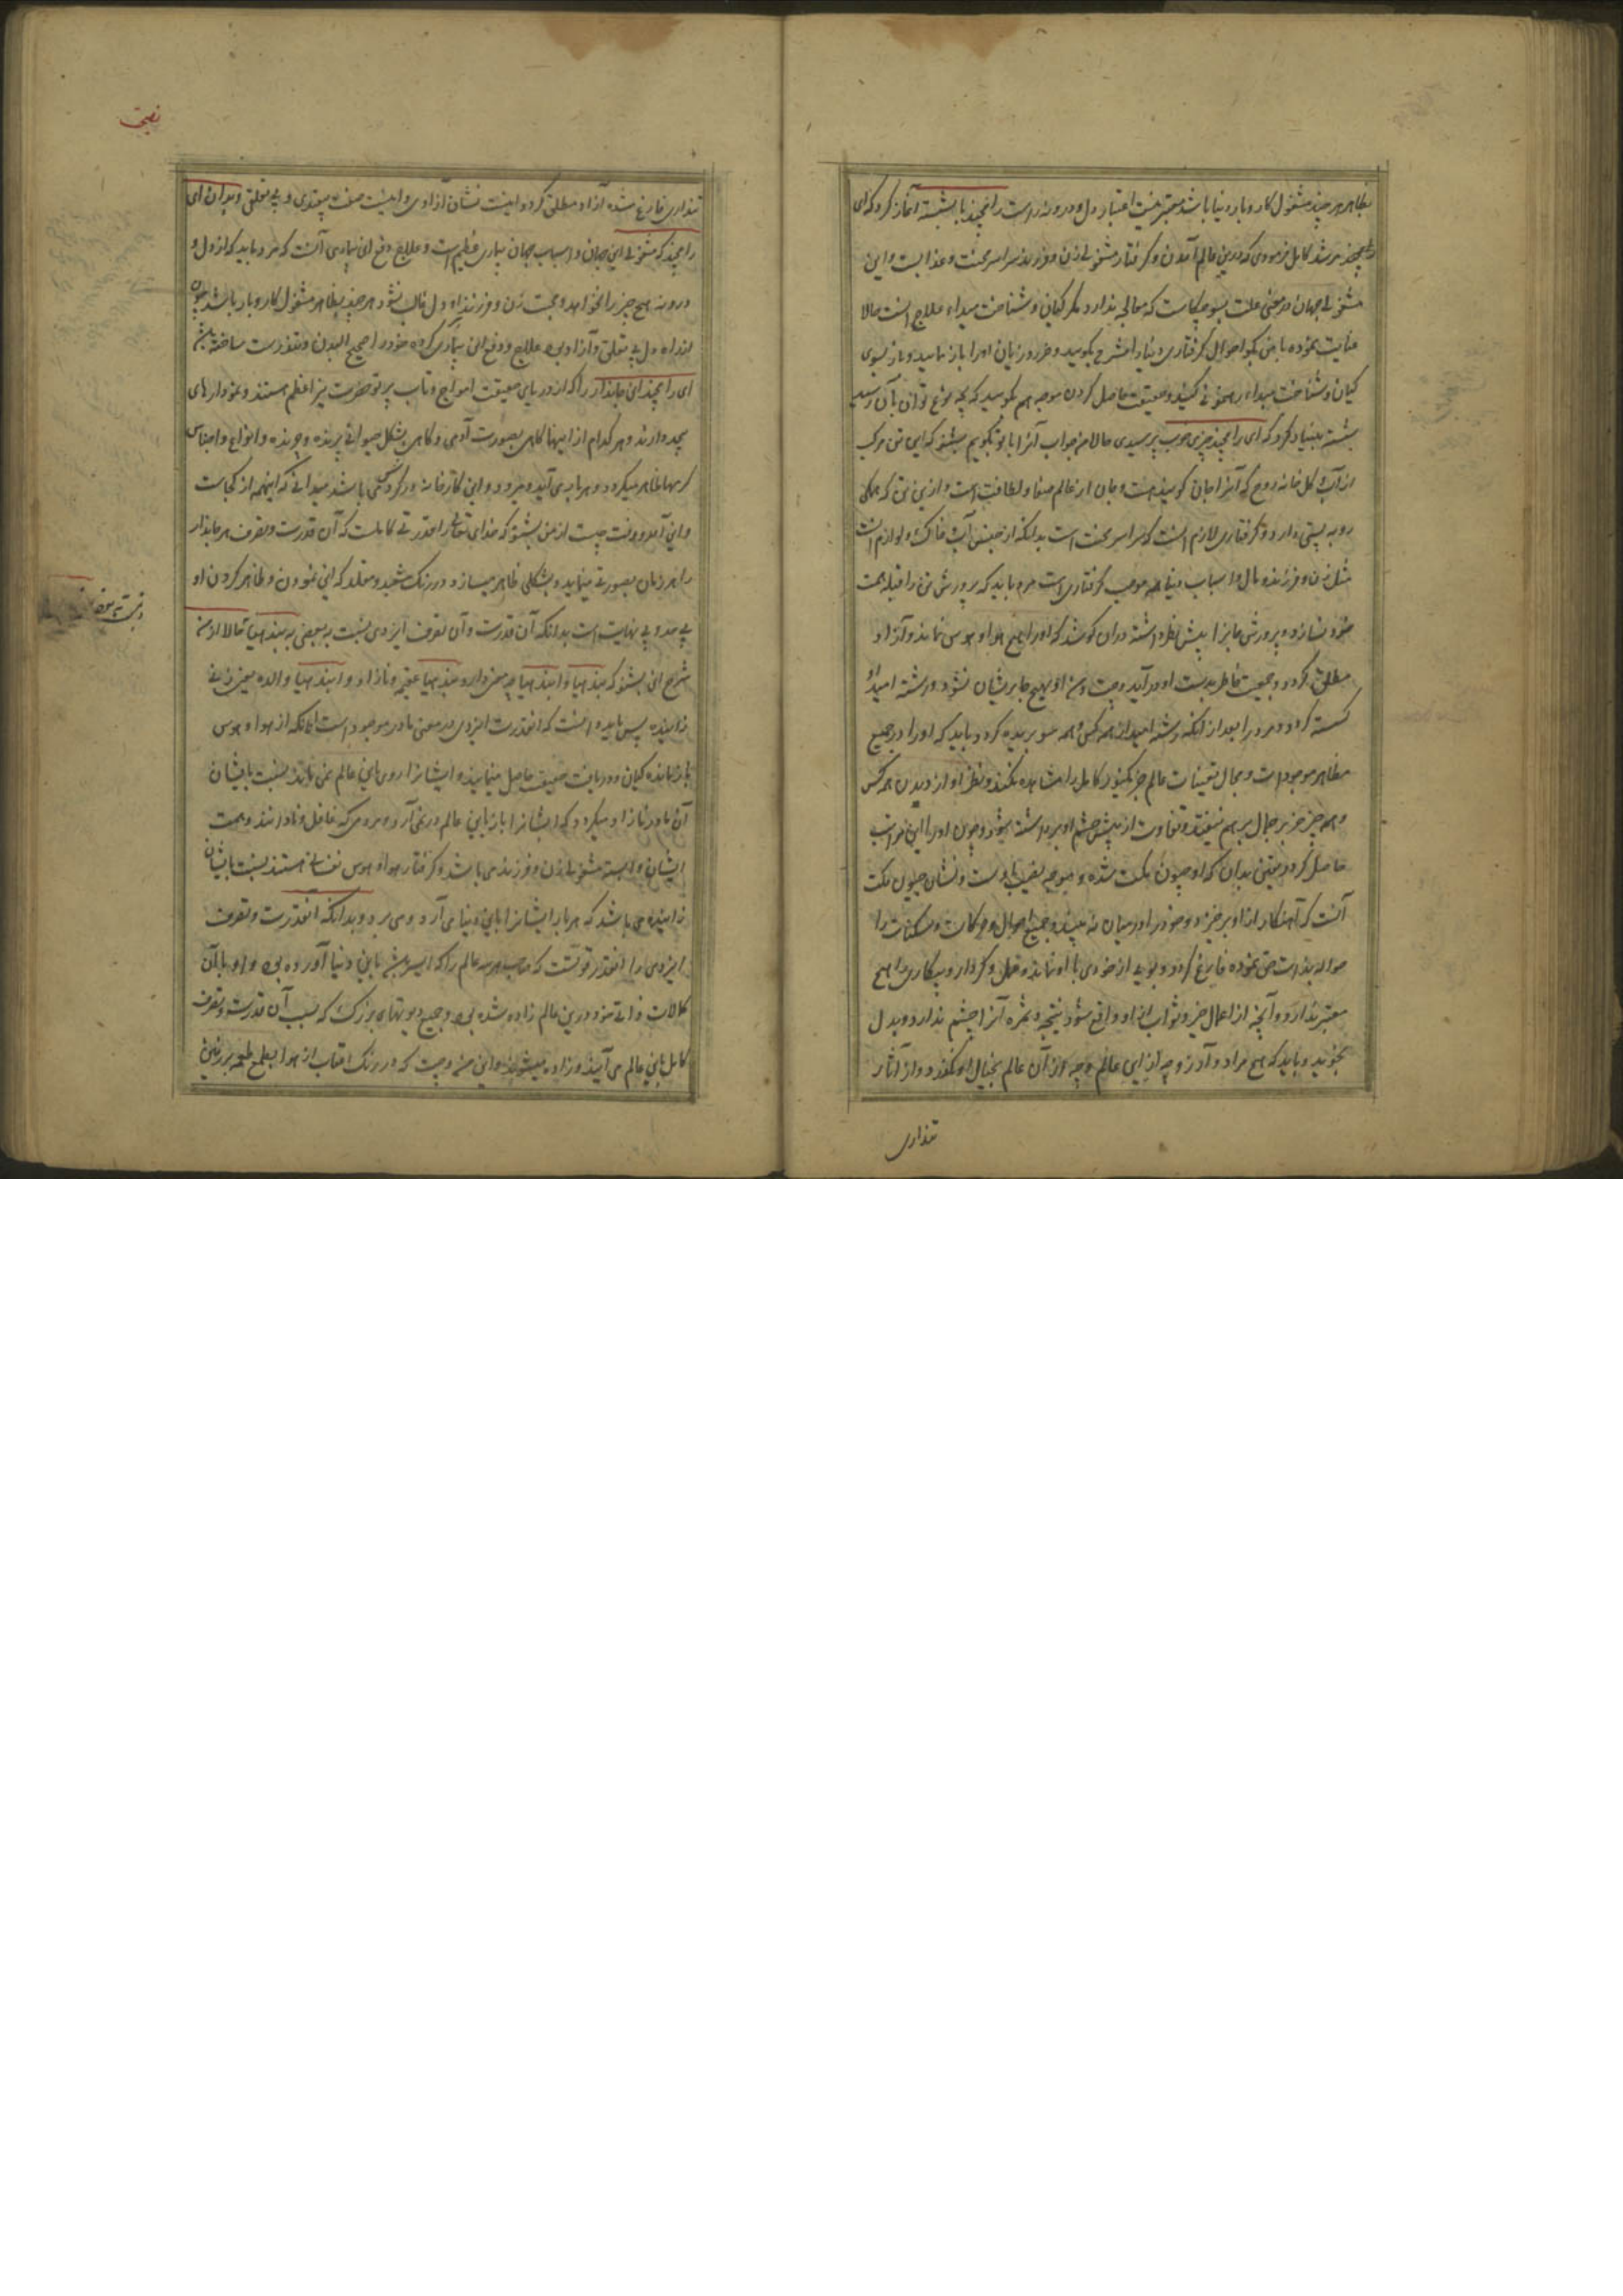 بظاهر هر چند مشغول کار و بار دنیا باشد معتبر نیست اعتبار دل و درونه راست رامچند با بشسته آغاز کرد که ای
مرشد کامل فرمودی که درین عالم آمدن و گرفتار مشغولی زن و فرزند سراسر محنت و عذابست و این
مشغولی جهان در معنی علت است که معالجه ندارد مگر گیان و شناخت مبداء علاج اوست حالا
عنایت نموده با من بگو احوال گرفتاری دنیا را مشرح بگویید و ضرر و زیان او را باز نمایید و باز بسوی
گیان و شناخت مبداء رهنمونی کنید و حقیقت حاصل کردن موجه هم بگویید که بچه نوع توان بآن رسید
بشسته بنیاد کرد که ای رامچند چیزی خوب پرسیدی حالا من جواب آنرا با تو بگویم بشنو که این تن مرکب
از آب و گل خانه روح که آنرا جان گویند هست و جان از عالم صفا و لطافت است و ازین تن که همگی
رو به پستی دارد و گرفتاری لازم اوست که سراسر محنت است بدانکه از جنس آب و خاک و لوازم اوست
مثل زن و فرزند و مال و اسباب دنیا همه موجب گرفتاری است مرد باید که پرورش تن را قبله همت
خود نسازد و پرورش جانرا پیش نظر داشته در آن کوشد که او را هیچ هوا و هوس نماند و آزاد
مطلق گردد و جمعیت خاطر بدست او درآید و چت و من او بهیچ جا پریشان نشود و رشته امید او
گسسته گردد و مرد را بعد از آنکه رشته امید از همه کس و همه سو بریده گردد باید که او را در جمیع
مظاهر موجود است و بحال تعینات عالم جز یک نور کامل را مشاهده نکند و نظر او از دیدن همه کس
و همه چیز جز بر جمال برهم نیفتد و تفاوت از پیش چشم او برداشته شود و چون او را این مراتب
حاصل گردد یقین بدان که او جیون مکت شده و نشان جیون مکت
آنست که آهنکار از او برخیزد و خود را در میان نه بیند و جمیع احوال و حرکات و سکنات را
حواله بذات حق نموده فارغ گردد و بویی از خودی با او نماند و عمل و کردار و بیکاری را هیچ
معتبر ندارد و آنچه از اعمال خیر و ثواب از او واقع شود نتیجه و ثمره آنرا چشم ندارد و بدل
نجوید و باید که هیچ مراد و آرزو چه از این عالم و چه از آن عالم بخیال او نگذرد و از آثار
تنداری
تنداری فارغ شده آزاد مطلق گردد اینست نشان آزادی و اینست صفت بیقیدی و بی تعلقی و بدان ای
رامچند که مشغولی این جهان و اسباب جهان بیماری عظیم است و علاج دفع این بیماری آنست که مرد باید که از دل و
درونه هیچ چیز را نخواهد و محبت زن و فرزند او بر دل غالب نشود هر چند بظاهر مشغول کار و بار باشد چون
از راه دل بی تعلق و آزاد بود علاج و دفع این بیماری کرده خود را صحیح البدن و تندرست ساخته باشد
ای رامچند این جاندار را که از دریای حقیقت امواج و تاب پرتو حضرت نیر اعظم هستند و نمودارهای
بیحد دارند و هر کدام از اینها گاهی بصورت آدمی و گاهی بشکل حیوانی پرنده و چرنده و انواع و اجناس
کرمها ظاهر میگردد و هر بار می آید و میرود و این کارخانه در گردش می باشد میدانی که اینهمه از کجاست
و این آمد و رفت چیست از من بشنو که خدای تعالی را قدرتی کامل است که آن قدرت و تصرف هر جاندار
را هر زمان بصورتی مینماید و بشکلی ظاهر میسازد و در رنگ شعبده و مقلد که این نمودن و ظاهر کردن او
بی حد و بی نهایت است بدانکه آن قدرت و آن تصرف ایزدی نسبت به بعضی به بندهیا حالا از من
شرح این بشنو که بندهیا و ابندهیا چه معنی دارد بندهیا عقیمه و نازاد و ابندهیا والده یعنی زنی
زاینده پس باید دانست که آنقدرت ایزدی در معنی مادر موجودات است آنانکه از هوا و هوس
باز مانده گیان و دریافت حقیقت حاصل مینمایند و ایشانرا روی باین عالم نمی ماند نسبت بایشان
آن مادر نازاد میگردد که ایشانرا باز باین عالم در نمی آرد و مردمی که غافل و نادانند و همت
ایشان وابسته مشغولی زن و فرزند می باشد و گرفتار هوا و هوس نفسانی هستند نسبت بایشان
زاینده می باشد که هر بار ایشانرا باین دنیا می آرد و می برد و بدانکه آنقدرت و تصرف
ایزدی را آنقدر قوتست که صاحب هر سه عالم را که ایسر باشد باین دنیا آورده بود و او با آن
کمالات ذاتی خود درین عالم زاده شده بود و جمیع دیوتهای بزرگ که بسبب آن قدرت و تصرف
کامل باین عالم می آیند و زاده میشوند و این من و چت که در رنگ آفتاب از هوا بطمع طعمه بر زمین